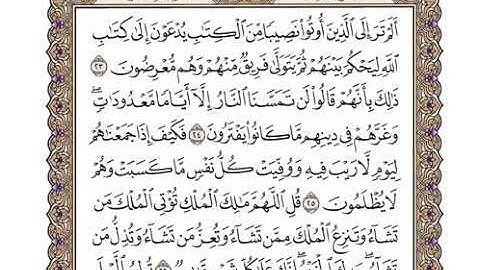 أَلَمْ تَرَ إِلَى ٱلَّذِينَ أُوتُوا۟ نَصِيبًا مِّنَ ٱلْكِتَٰبِ يُدْعَوْنَ إِلَىٰ كِتَٰبِ
ٱللَّهِ لِيَحْكُمَ بَيْنَهُمْ ثُمَّ يَتَوَلَّىٰ فَرِيقٌ مِّنْهُمْ وَهُم مُّعْرِضُونَ ٢٣
ذَٰلِكَ بِأَنَّهُمْ قَالُوا۟ لَن تَمَسَّنَا ٱلنَّارُ إِلَّآ أَيَّامًا مَّعْدُودَٰتٍ ۖ
وَغَرَّهُمْ فِى دِينِهِم مَّا كَانُوا۟ يَفْتَرُونَ ٢٤ فَكَيْفَ إِذَا جَمَعْنَٰهُمْ
لِيَوْمٍ لَّا رَيْبَ فِيهِ وَوُفِّيَتْ كُلُّ نَفْسٍ مَّا كَسَبَتْ وَهُمْ
لَا يُظْلَمُونَ ٢٥ قُلِ ٱللَّهُمَّ مَٰلِكَ ٱلْمُلْكِ تُؤْتِى ٱلْمُلْكَ مَن
تَشَآءُ وَتَنزِعُ ٱلْمُلْكَ مِمَّن تَشَآءُ وَتُعِزُّ مَن تَشَآءُ وَتُذِلُّ مَن